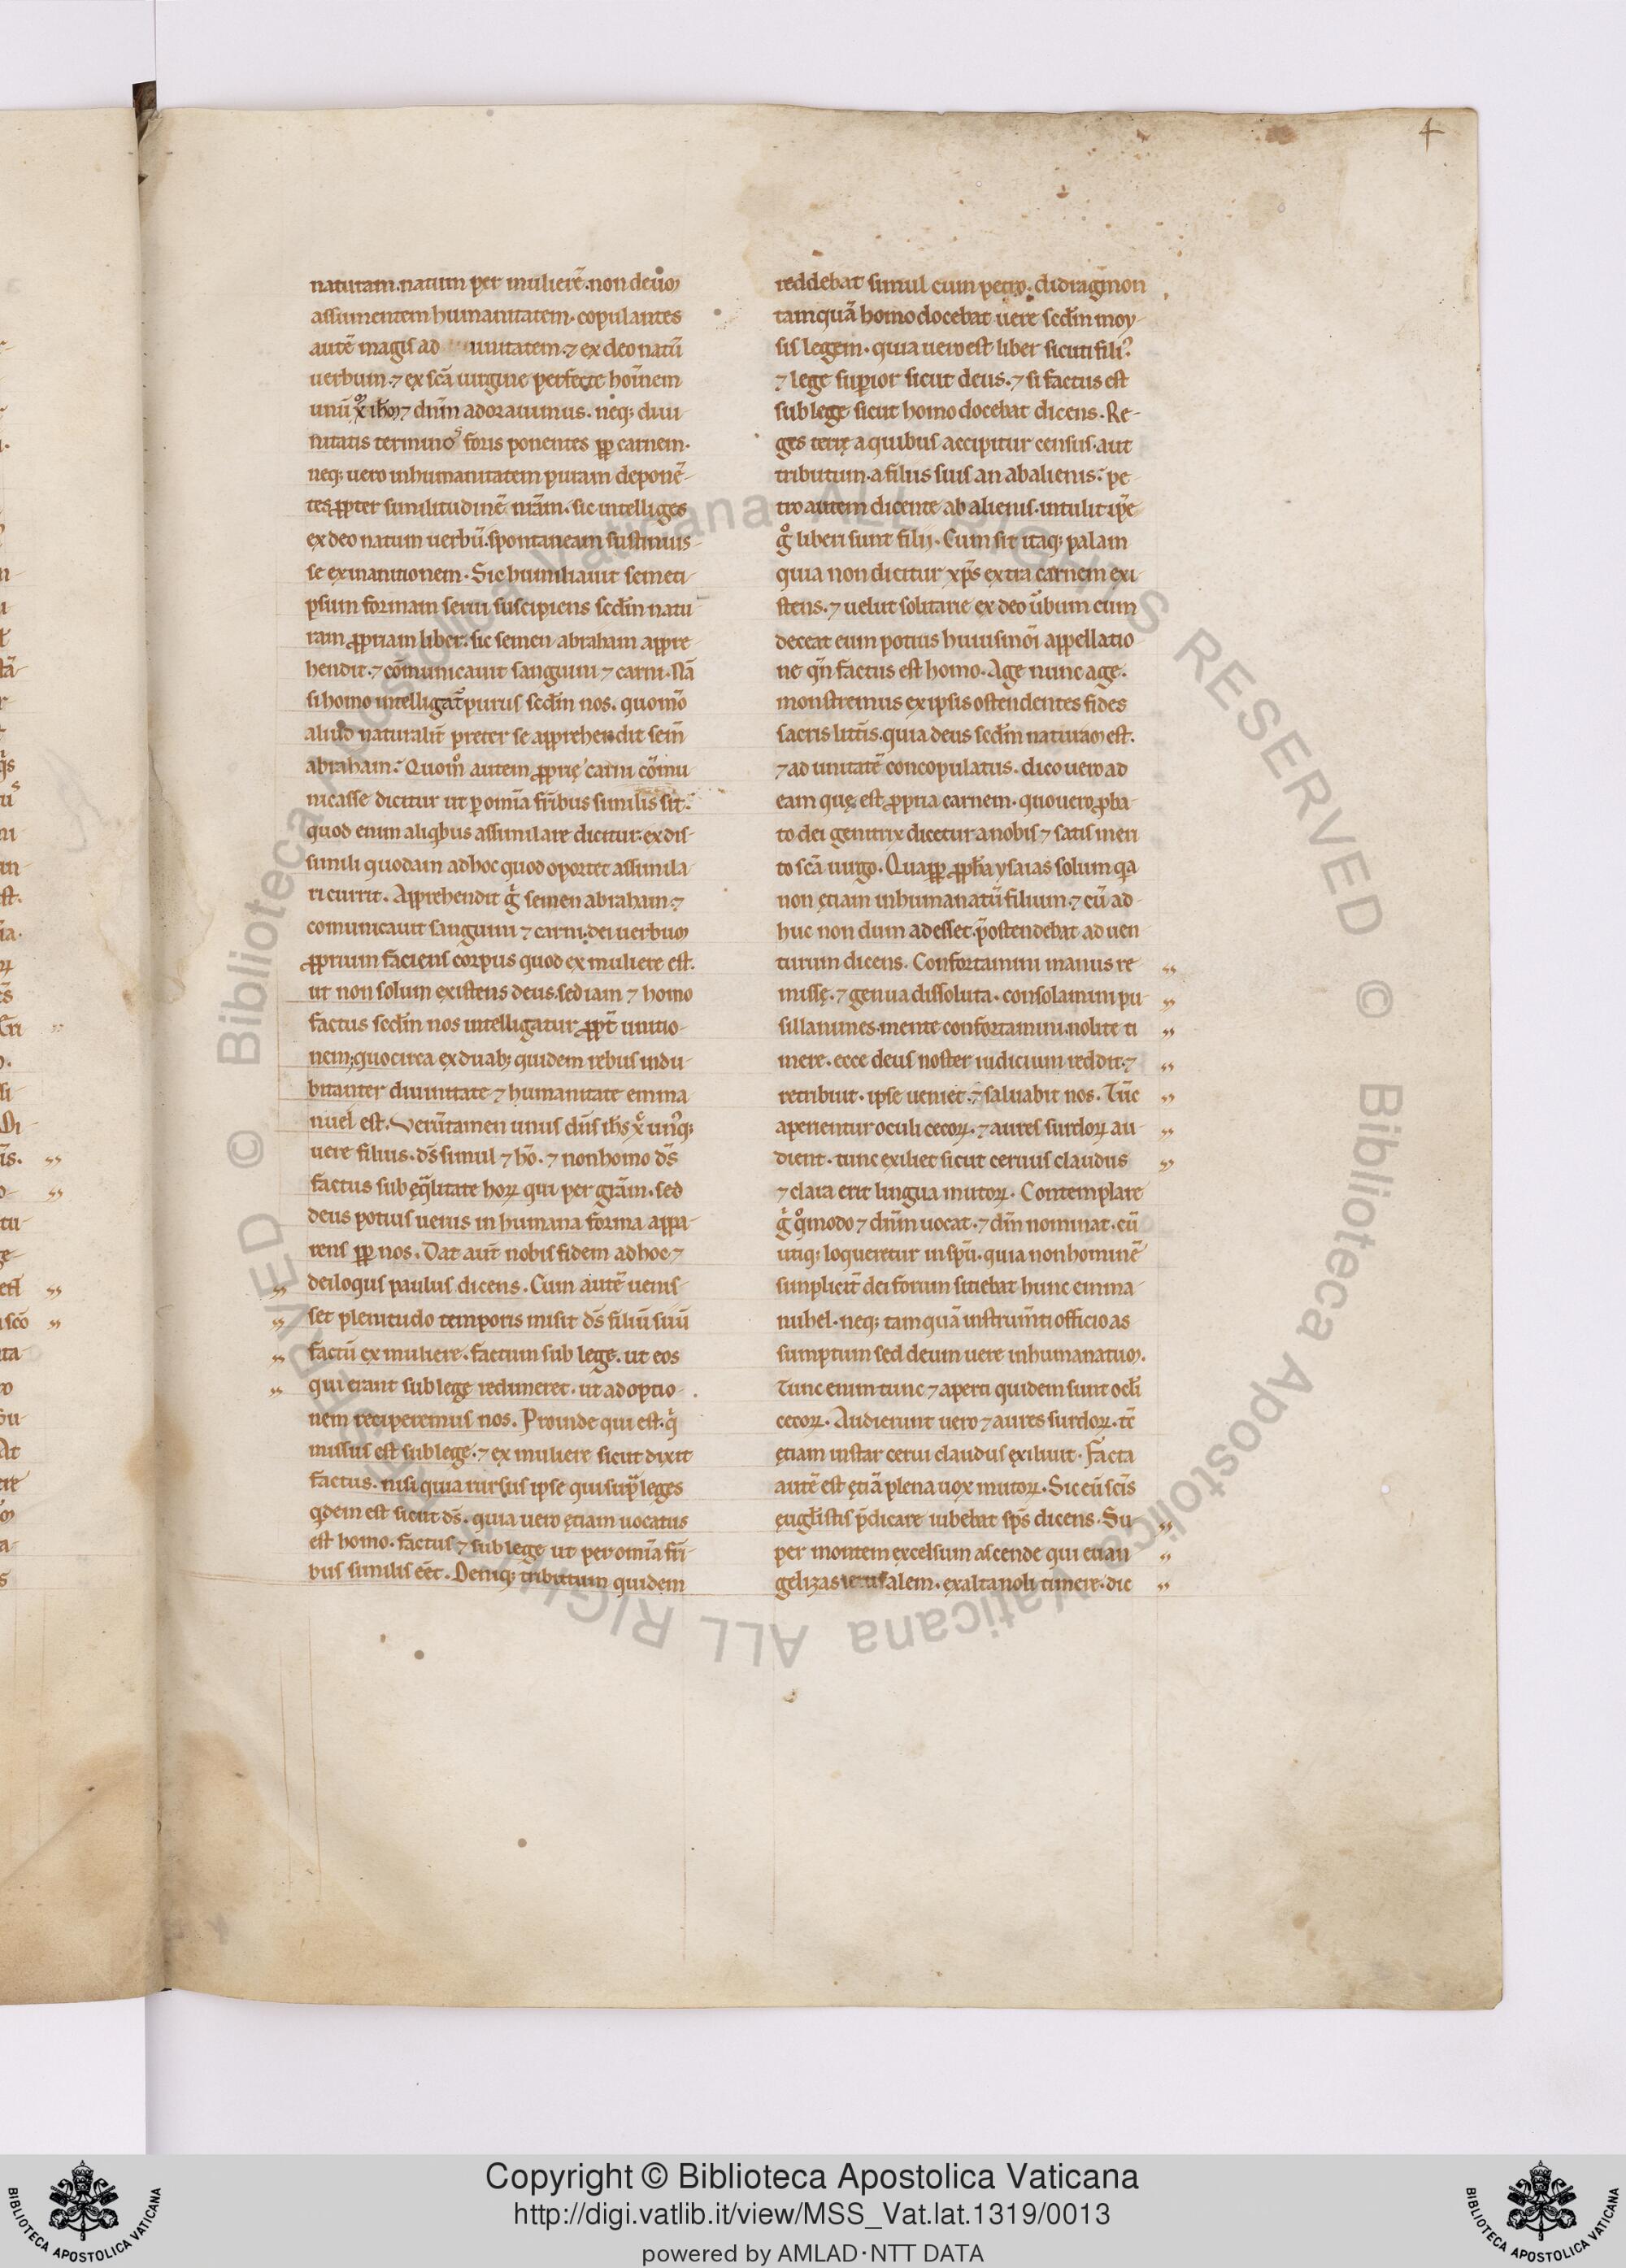 4
naturam. natum per mulierē. non deuo᷒
assumentem humanitatem. copulantes
autē magis ad unitatem. ⁊ ex deo natū
uerbum. ⁊ ex scā uirgine perfecte hominem
unū xͦ ihm ⁊ dn̄m adorauimus. neq; diui
nitatis termino foris ponentes ꝓp carnem.
neq; uero in humanitatem puram deponē-
tes ꝓpter similitudinē nr̄am. sic intelliges
ex deo natum uerbū. spontaneam sustinuis-
se exinanitionem. Sic humiliauit semeti-
psum formam serui suscipiens scd̄m natu-
ram ꝓpriam liber. sic semen abraham appre-
hendit. ⁊ cōmunicauit sanguini ⁊ carni. Nā
si homo intelligat᷑ purus scd̄m nos. quomō
aliud naturalit᷑ preter se apprehendit sem̄
abraham. Quomͦ autem ꝓprię carni cōmu
nicasse dicitur ut ꝑ omīa fr̄ibus similis sit.
quod enim aliqͥbus assimilare dicitur. ex dis-
simili quodam ad hoc quod oportet assimila
ri currit. Apprehendit gͥ semen abraham. ⁊
comunicauit sanguini ⁊ carni. dei uerbum
ꝓprium faciens corpus quod ex muliere est.
ut non solum existens deus. sed iam ⁊ homo
factus scd̄m nos intelligatur ꝓpt᷑ unitio-
nem; quocirca ex duab; quidem rebus indu-
bitanter diuinitate ⁊ humanitate emma
nuel est. Uerūtamen unus dn̄s ih̄s xͦ unꝰq;
uere filius. ds̄ simul ⁊ hō. ⁊ non homo ds̄
factus sub eqͣlitate hoꝝ qui per grām. sed
deus potius uerus in humana forma appa-
rens ꝓp nos. Dat aut̄ nobis fidem ad hoc ⁊
„ deiloqus paulus dicens. Cum autē uenis-
„ set plenitudo temporis misit ds̄ filiū suū
„ factū ex muliere. factum sub lege. ut eos
„ qui erant sub lege redimeret. ut adoptio-
nem reciperemus nos. Proinde qui est. qͥ
missus est sub lege. ⁊ ex muliere sicut dixit
factus. nisi quia rursus ipse qui supͣ leges
qͥdem est sicut ds̄. quia uero etiam uocatus
est homo. factus ⁊ sub lege ut per omīa fr̄i
bus similis eēt. Deniq; tributum quidem
reddebat simul cum petro. didragmon
tamquā homo docebat uere scd̄m moy-
sis legem. quia uero est liber sicuti filiꝰ.
⁊ lege superior sicut deus. ⁊ si factus est
sub lege sicut homo docebat dicens. Re-
ges terre a quibus accipitur census. aut
tributum. a filiis suis an ab alienis. pe-
tro autem dicente ab alienis. intulit ip̄e
gͦ liberi sunt filij. Cum sit itaq; palam
quia non dicitur xp̄s extra carnem exi-
stens. ⁊ uelut solitarie ex deo u᷑bum cum
deceat eum potius huiusmōi appellatio-
ne qn̄ factus est homo. Age nunc age.
monstremus ex ipsis ostendentes fides
sacris litt̄is. quia deus scd̄m naturam est.
⁊ ad unitatē concopulatus. dico uero ad
eam quę est ꝓpria carnem. quo uero ꝓba-
to dei genitrix dicetur a nobis ⁊ satis meri
to scā uirgo. Quaꝓp ꝓpha ysaias solum qͥa
non etiam inhumanatū filium. ⁊ cū ad-
huc non dum adesset p̄ostendebat aduen
turum dicens. Confortamini manus re „
missę. ⁊ genua dissoluta. consolamini pu- „
sillanimes mente confortamini. nolite ti „
mere. ecce deus noster iudicium reddit. ⁊ „
retribuit. ipse ueniet. ⁊ saluabit nos. Tūc „
aperientur oculi cecoꝝ. ⁊ aures surdoꝝ au- „
dient. tunc exiliet sicut ceruus claudus „
⁊ clara erit lingua mutoꝝ. Contemplare
gͥ qͦmodo ⁊ dn̄m uocat. ⁊ dm̄ nominat. cū
utiq; loqueretur in sp̄u. quia non hominē
simplicit᷑ dei forum sciebat hunc emma
nuhel. neq; tamquā instrum̄ti officio as
sumptum sed deum uere inhumanatum.
Tunc enim tunc ⁊ aperti quidem sunt oc̄li
cecoꝝ. Audierunt uero ⁊ aures surdoꝝ. tc̄
etiam instar cerui claudus exiliuit. Facta
autē est etiā plena uox mutoꝝ. Sic eū scīs
euglistis p̄dicare iubebat sp̄s dicens. Su- „
per montem excelsum ascende qui euan „
gelizas ierusalem. exalta noli timere. dic „
Copyright © Biblioteca Apostolica Vaticana
http://digi.vatlib.it/view/MSS_Vat.lat.1319/0013
powered by AMLAD·NTT DATA
BIBLIOTECA APOSTOLICA VATICANA
BIBLIOTECA APOSTOLICA VATICANA
© Biblioteca Apostolica Vaticana ALL RIGHTS RESERVED © Biblioteca Apostolica Vaticana ALL RIGHTS RESERVED